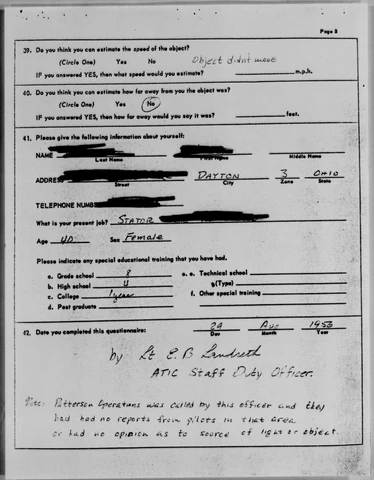 Page 8
39. Do you think you can estimate the speed of the object?
(Circle One) Yes No Object didn't move
IF you answered YES, then what speed would you estimate? m.p.h.
40. Do you think you can estimate how far away from you the object was?
(Circle One) Yes No
IF you answered YES, then how far away would you say it was? feet.
41. Please give the following information about yourself:
NAME
Last Name First Name Middle Name
ADDRESS DAYTON 3 OHIO
Street City Zone State
TELEPHONE NUMB
What is your present job?
Age 40 Sex Female
Please indicate any special educational training that you have had.
a. Grade school 8 e. Technical school
b. High school 4 (Type)
c. College 1 year f. Other special training
d. Post graduate
42. Date you completed this questionnaire: 24 Aug 1956
Day Month Year
by Lt E. B Landreth
ATIC Staff Duty Officer.
Note: Patterson Operations was called by this officer and they
had had no reports from pilots in that area
or had no opinion as to source of light or object.